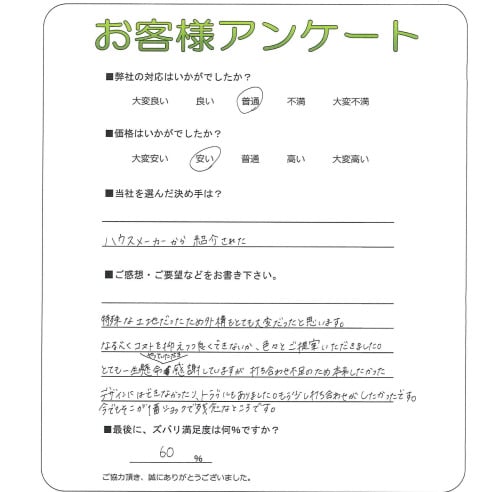 お客様アンケート
■弊社の対応はいかがでしたか？
大変良い 良い 普通 不満 大変不満
■価格はいかがでしたか？
大変安い 安い 普通 高い 大変高い
■当社を選んだ決め手は？
ハウスメーカーから紹介された
■ご感想・ご要望などをお書き下さい。
特殊な土地だったため外構もとても大変だったと思います。
なるべくコストを抑えつつ良くできないか、色々とご提案いただきました。
やっていただき
とても一生懸命感謝していますが打ち合わせ不足のため本来したかった
デザインにはできなかったり、トラブルもありました。もう少し打ち合わせがしたかったです。
今でもそこが残念なところです。
■最後に、ズバリ満足度は何%ですか？
60 %
ご協力頂き、誠にありがとうございました。